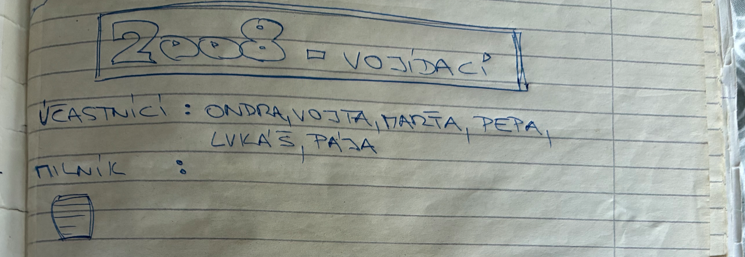 2008 - VOJÍDACÍ
ÚČASTNÍCI : ONDRA, VOJTA, MARŤA, PEPA,
LUKÁŠ, PÁJA
MILNÍK :